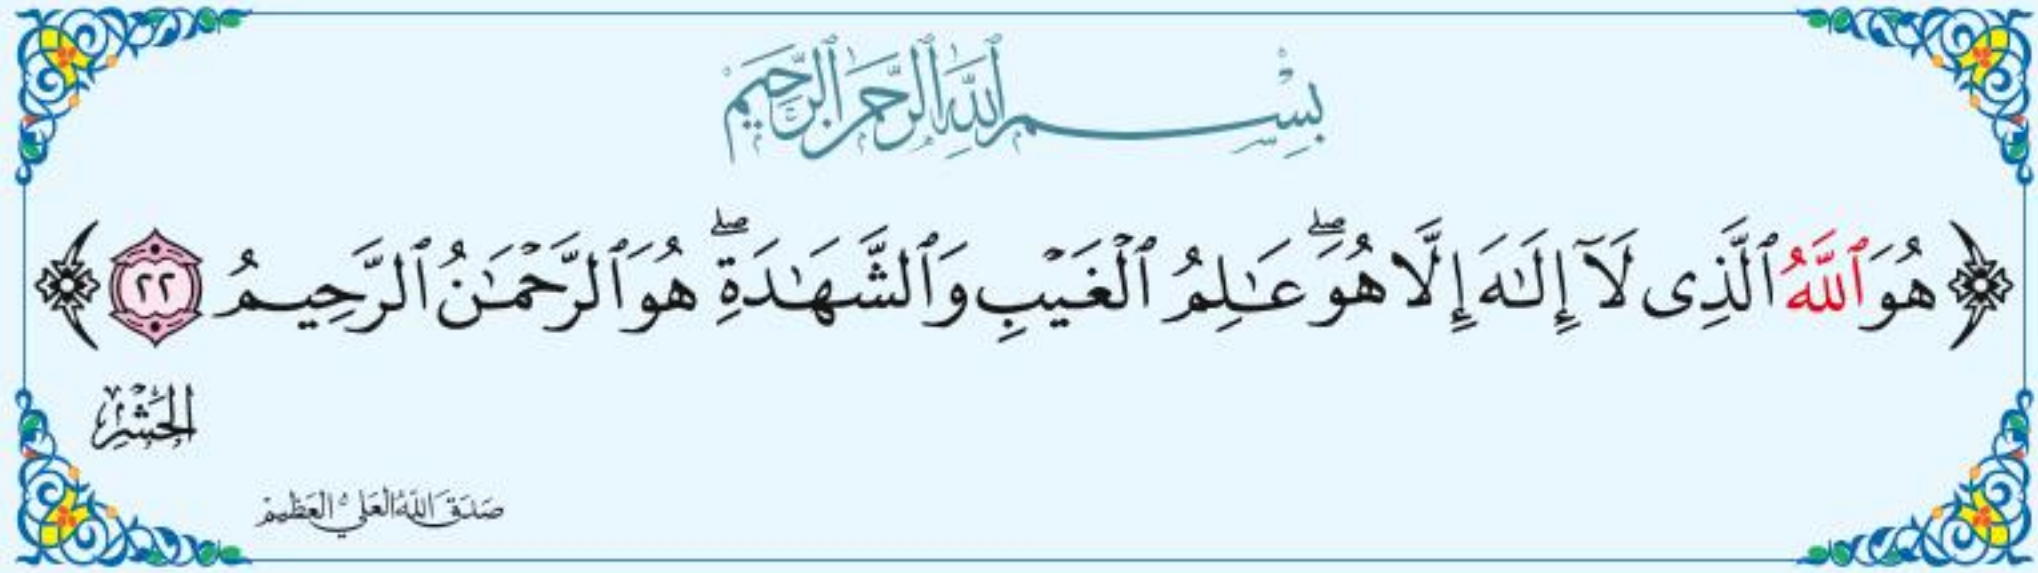 بِسْمِ ٱللَّهِ ٱلرَّحْمَٰنِ ٱلرَّحِيمِ
﴿هُوَ ٱللَّهُ ٱلَّذِى لَآ إِلَٰهَ إِلَّا هُوَ ۖ عَٰلِمُ ٱلْغَيْبِ وَٱلشَّهَٰدَةِ ۖ هُوَ ٱلرَّحْمَٰنُ ٱلرَّحِيمُ ٢٢﴾
الحَشْرِ
صَدَقَ اللَّهُ العَلِيُّ العَظِيمُ